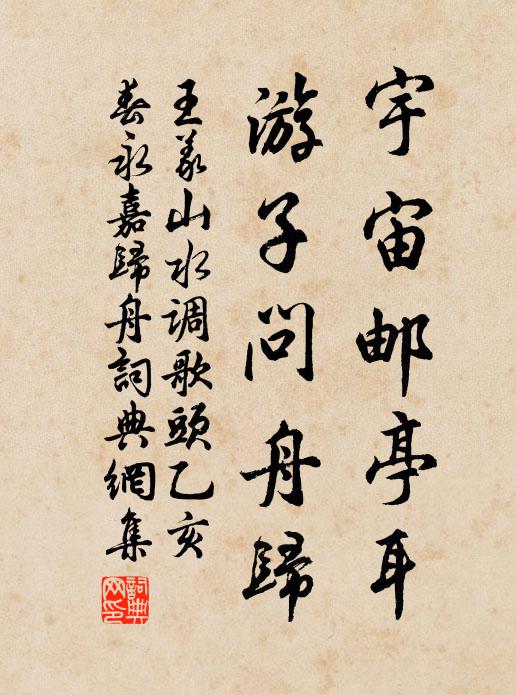 宇宙邮亭耳
游子问舟歸
王義山水调歌頭乙亥
春永嘉歸舟詞典網集
詞典網印